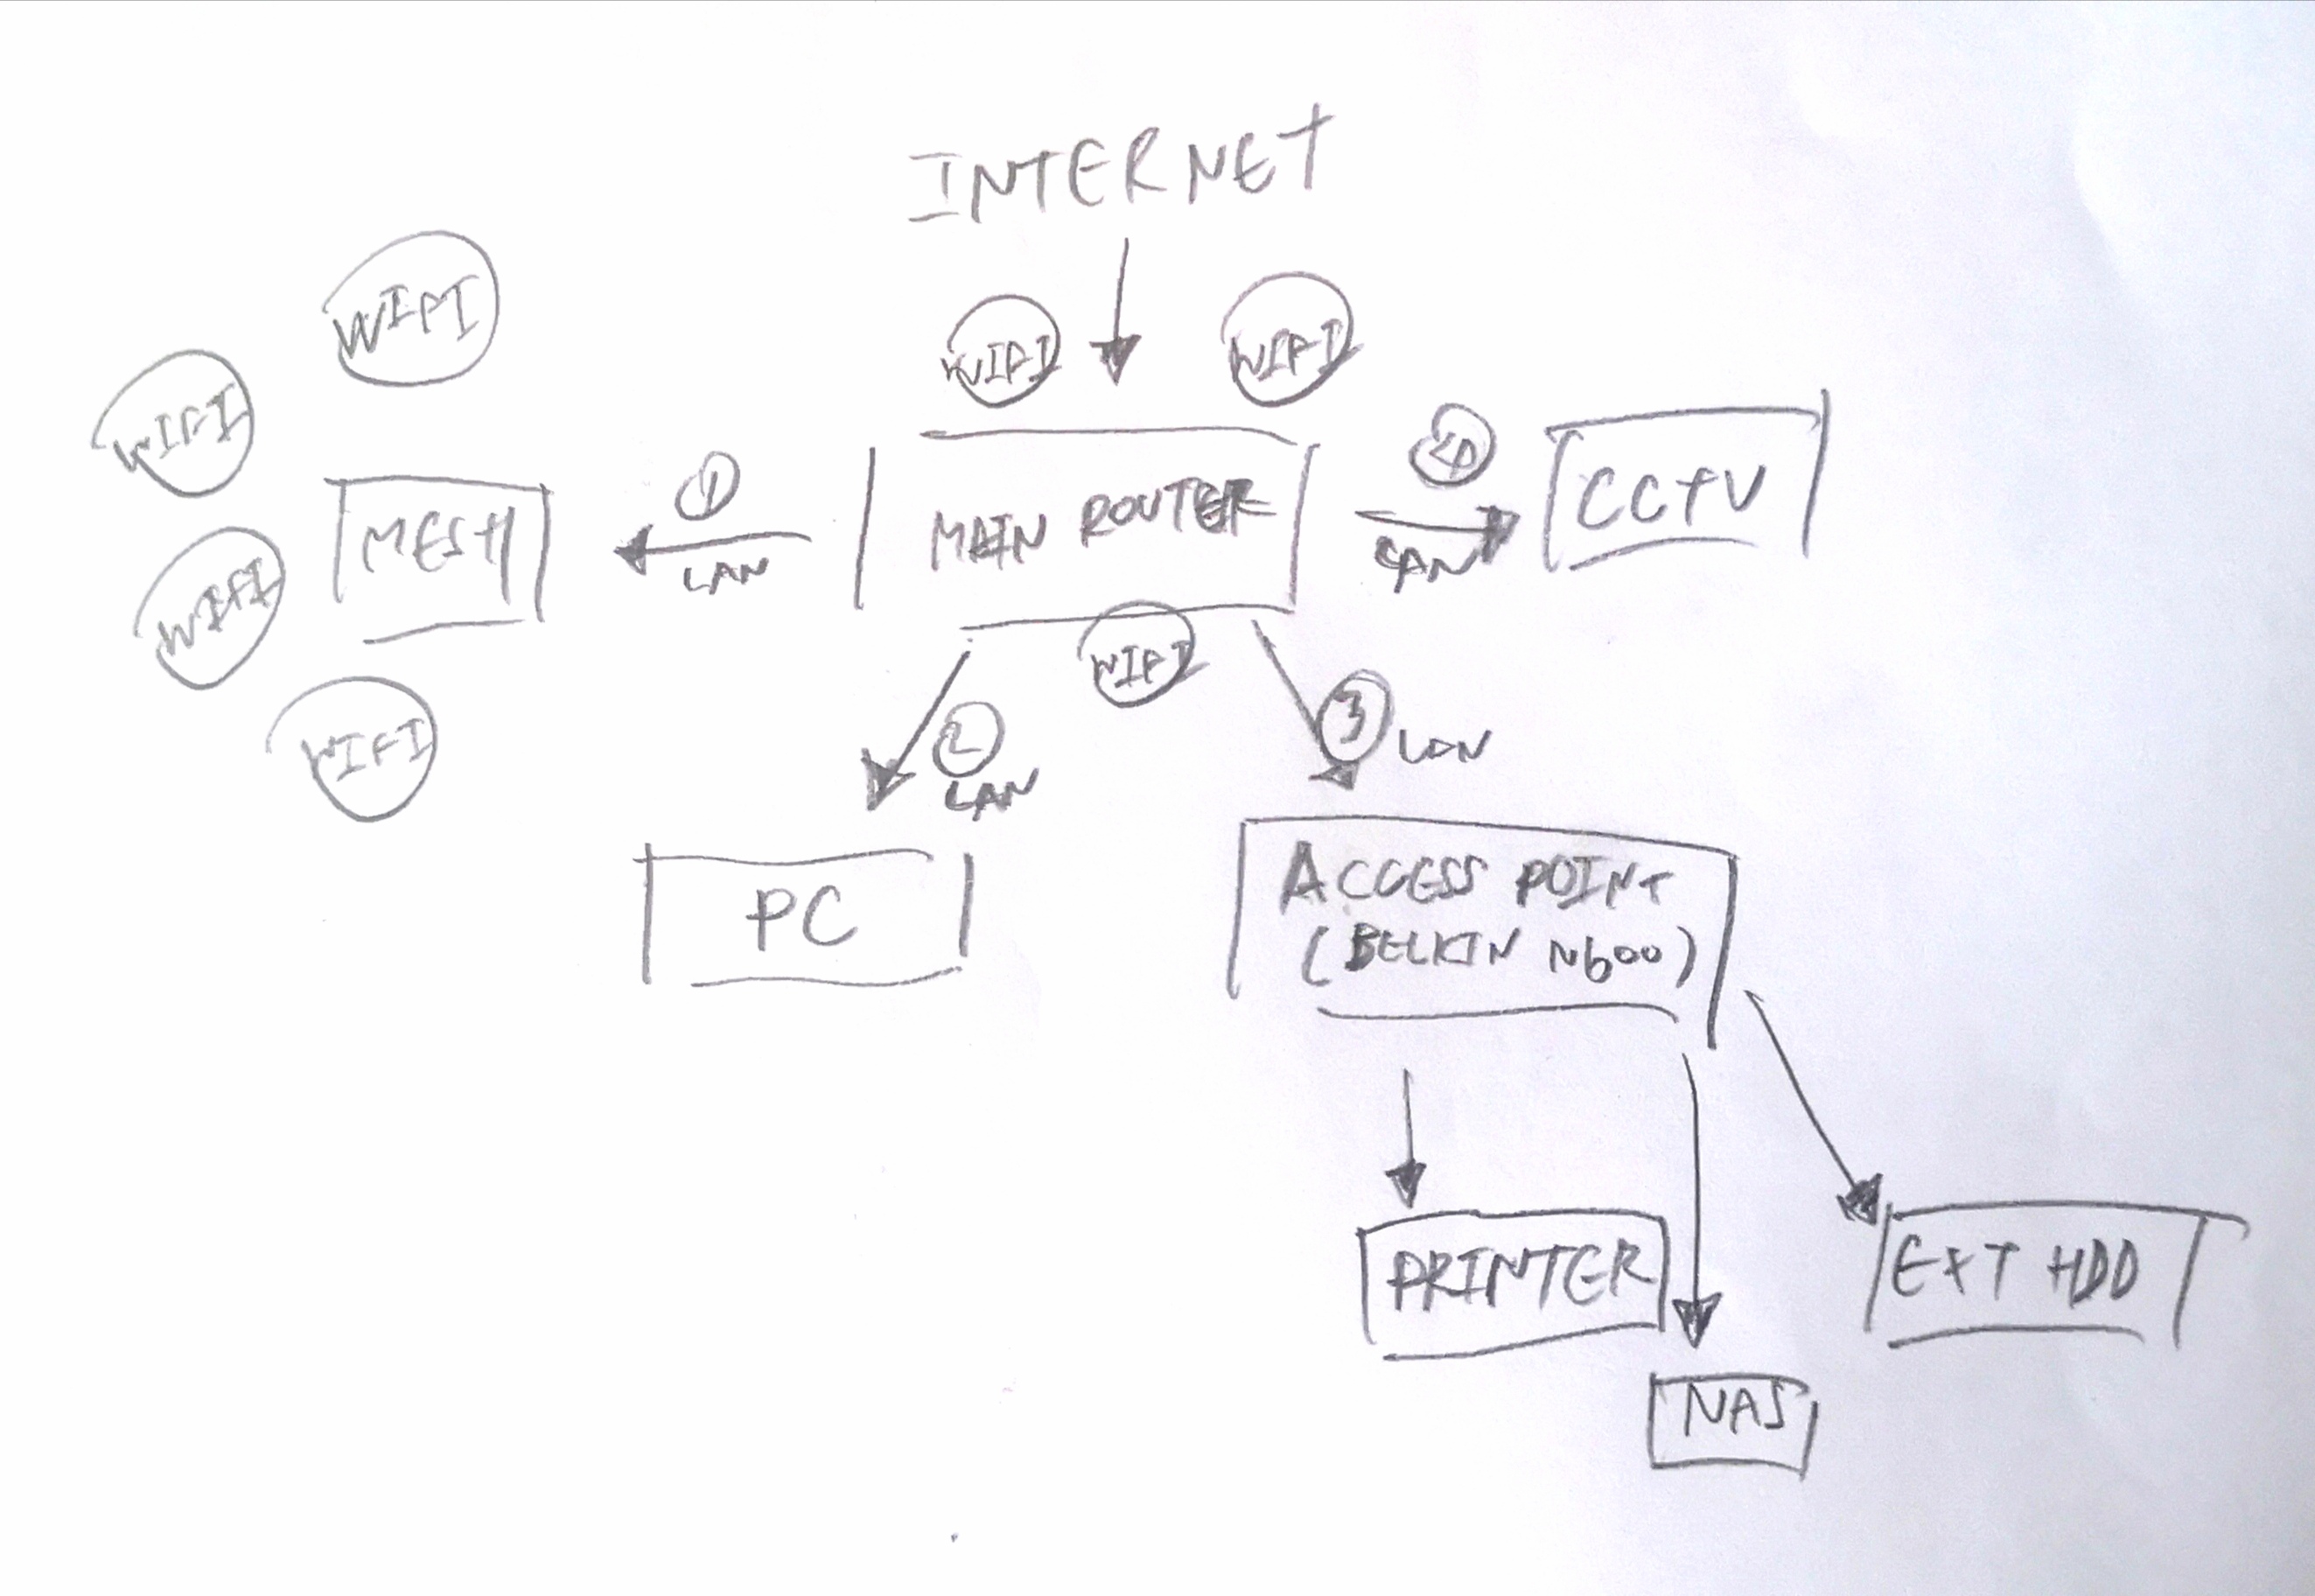 INTERNET
WIFI
WIFI
WIFI
WIFI
WIFI
WIFI
MESH
1
LAN
MAIN ROUTER
WIFI
4
LAN
CCTV
2
LAN
3
LAN
PC
ACCESS POINT
(BELKIN N600)
PRINTER
NAS
EXT HDD